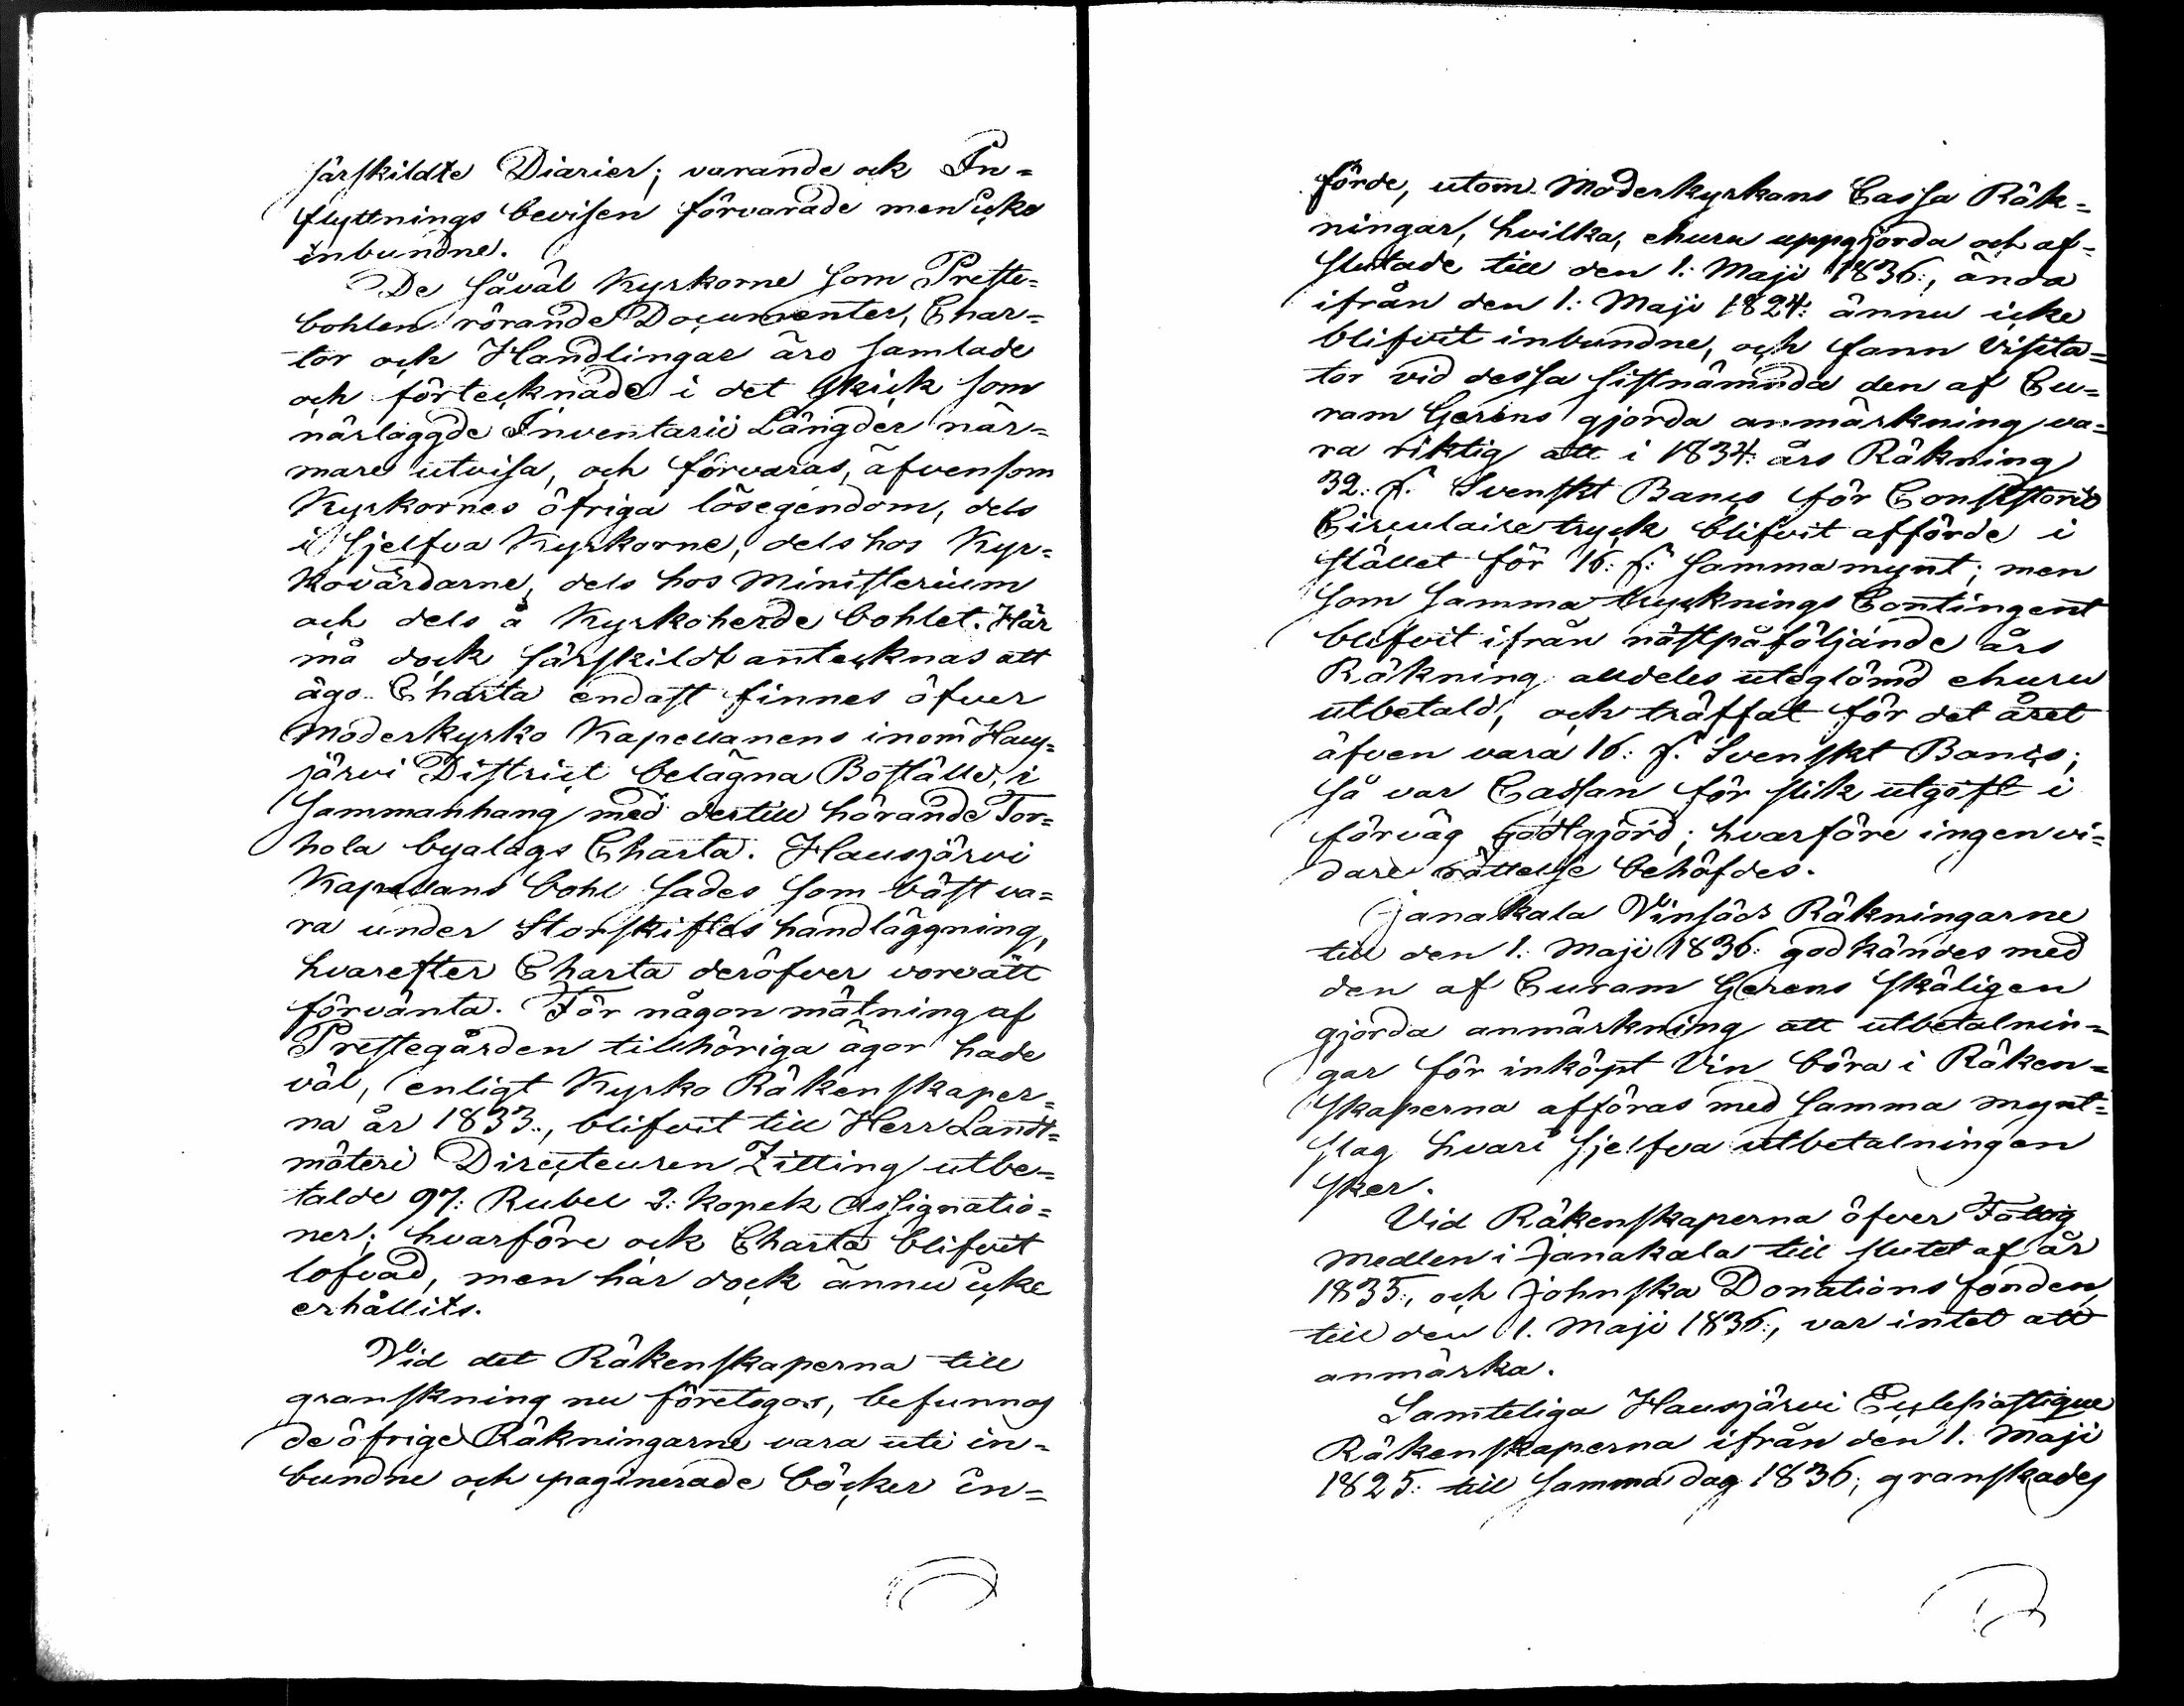 särskildte Diarier; varande ock In=
flyttnings bevisen förvarade men icke
inbundne.
De såväl Kyrkorne som Preste=
bohlen rörande Documenter, Char=
tor och Handlingar äro samlade
och förtecknade i det skick som
närlaggde Inventarii Längder när=
mare utvisa, och förvaras, äfvensom
Kyrkornes öfriga lösegendom, dels
i sjelfva Kyrkorne, dels hos Kyr=
kovärdarne, dels hos Ministerium
och dels å Kyrkoherde bohlet. Här
må dock särskildt antecknas att
ägo Charta endast finnes öfver
Moderkyrko Kapellanens inom Haus=
järvi District belägna Boställe, i
sammanhang med dertill hörande Tor=
hola byalags Charta. Hausjärvi
Kapellans bohl sades som bäst va=
ra under Storskiftes handläggning,
hvarefter Charta deröfver vore att
förvänta. För någon mätning af
Prestegården tillhöriga ägor hade
väl, enligt Kyrko Räkenskaper=
na år 1833., blifvit till Herr Landt=
mäteri Directeuren Zitting utbe=
talde 97: Rubel 2: kopek Assignatio=
ner; hvarföre ock Charta blifvit
lofvad, men här dock ännu icke
erhållits.
Vid det Räkenskaperna till
granskning nu företogos, befunnos
de öfrige Räkningarne vara uti in=
bundne och paginerade böcker in=
förde, utom Moderkyrkans Cassa Räk=
ningar, hvilka, ehuru uppgjorda och af=
slutade till den 1: Maji 1836:, ända
ifrån den 1: Maji 1824: ännu icke
blifvit inbundne, och fann Visita=
tor vid dessa sistnämnda den af Cu=
ram Gerens gjorda anmärkning va=
ra riktig att i 1834: års Räkning
32: ſ: Svenskt Banco för Consistorii
Circulaire tryck blifvit afförde i
stället för 16: ſ: samma mynt; men
som samma trycknings Contingent
blifvit ifrån nästpåföljande års
Räkning alldeles uteglömd ehuru
utbetald, och träffat för det året
äfven vara 16: ſ: Svenskt Banco;
så var Cassan för slik utgift i
förväg godtgjord; hvarföre ingen vi=
dare rättelse behöfdes.
Janakala Vinsäds Räkningarne
till den 1: Maji 1836: godkändes med
den af Curam Gerens skäligen
gjorda anmärkning att utbetalnin=
gar för inköpt Vin böra i Räken=
skaperna afföras med samma mynt=
slag hvari sjelfva utbetalningen
sker.
Vid Räkenskaperna öfver Fattig
medlen i Janakala till slutet af år
1835:, och Johnska Donations fonden,
till den 1. Maji 1836:, var intet att
anmärka.
Samteliga Hausjärvi Ecclesiastique
Räkenskaperna ifrån den 1. Maji
1825: till samma dag 1836; granskades